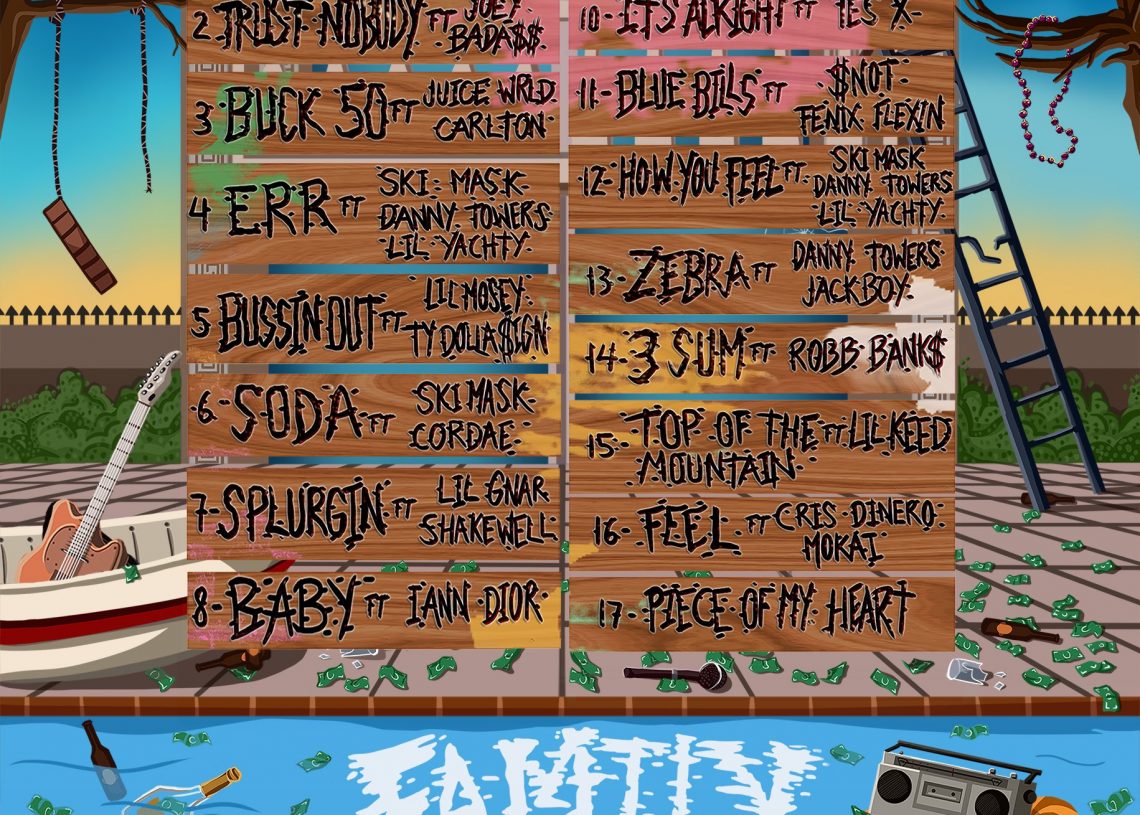 2. TRUST NOBODY FT JOEY BADA$$
3 BUCK 50 FT JUICE WRLD CARLTON
4 ERR FT SKI MASK DANNY TOWERS LIL YACHTY
5 BUSSIN OUT FT LIL MOSEY TY DOLLA $IGN
6 SODA FT SKI MASK CORDAE
7 SPLURGIN FT LIL GNAR SHAKEWELL
8 BABY FT IANN DIOR
10 IT'S ALRIGHT FT
11 BLUE BILLS FT $NOT FENIX FLEXIN
12 HOW YOU FEEL FT. SKI MASK DANNY TOWERS LIL YACHTY
13 ZEBRA FT DANNY TOWERS JACKBOY
14 3 SUM FT ROBB BANK$
15 TOP OF THE MOUNTAIN FT LIL KEED
16 FEEL FT CRIS DINERO MOKAI
17 PIECE OF MY HEART